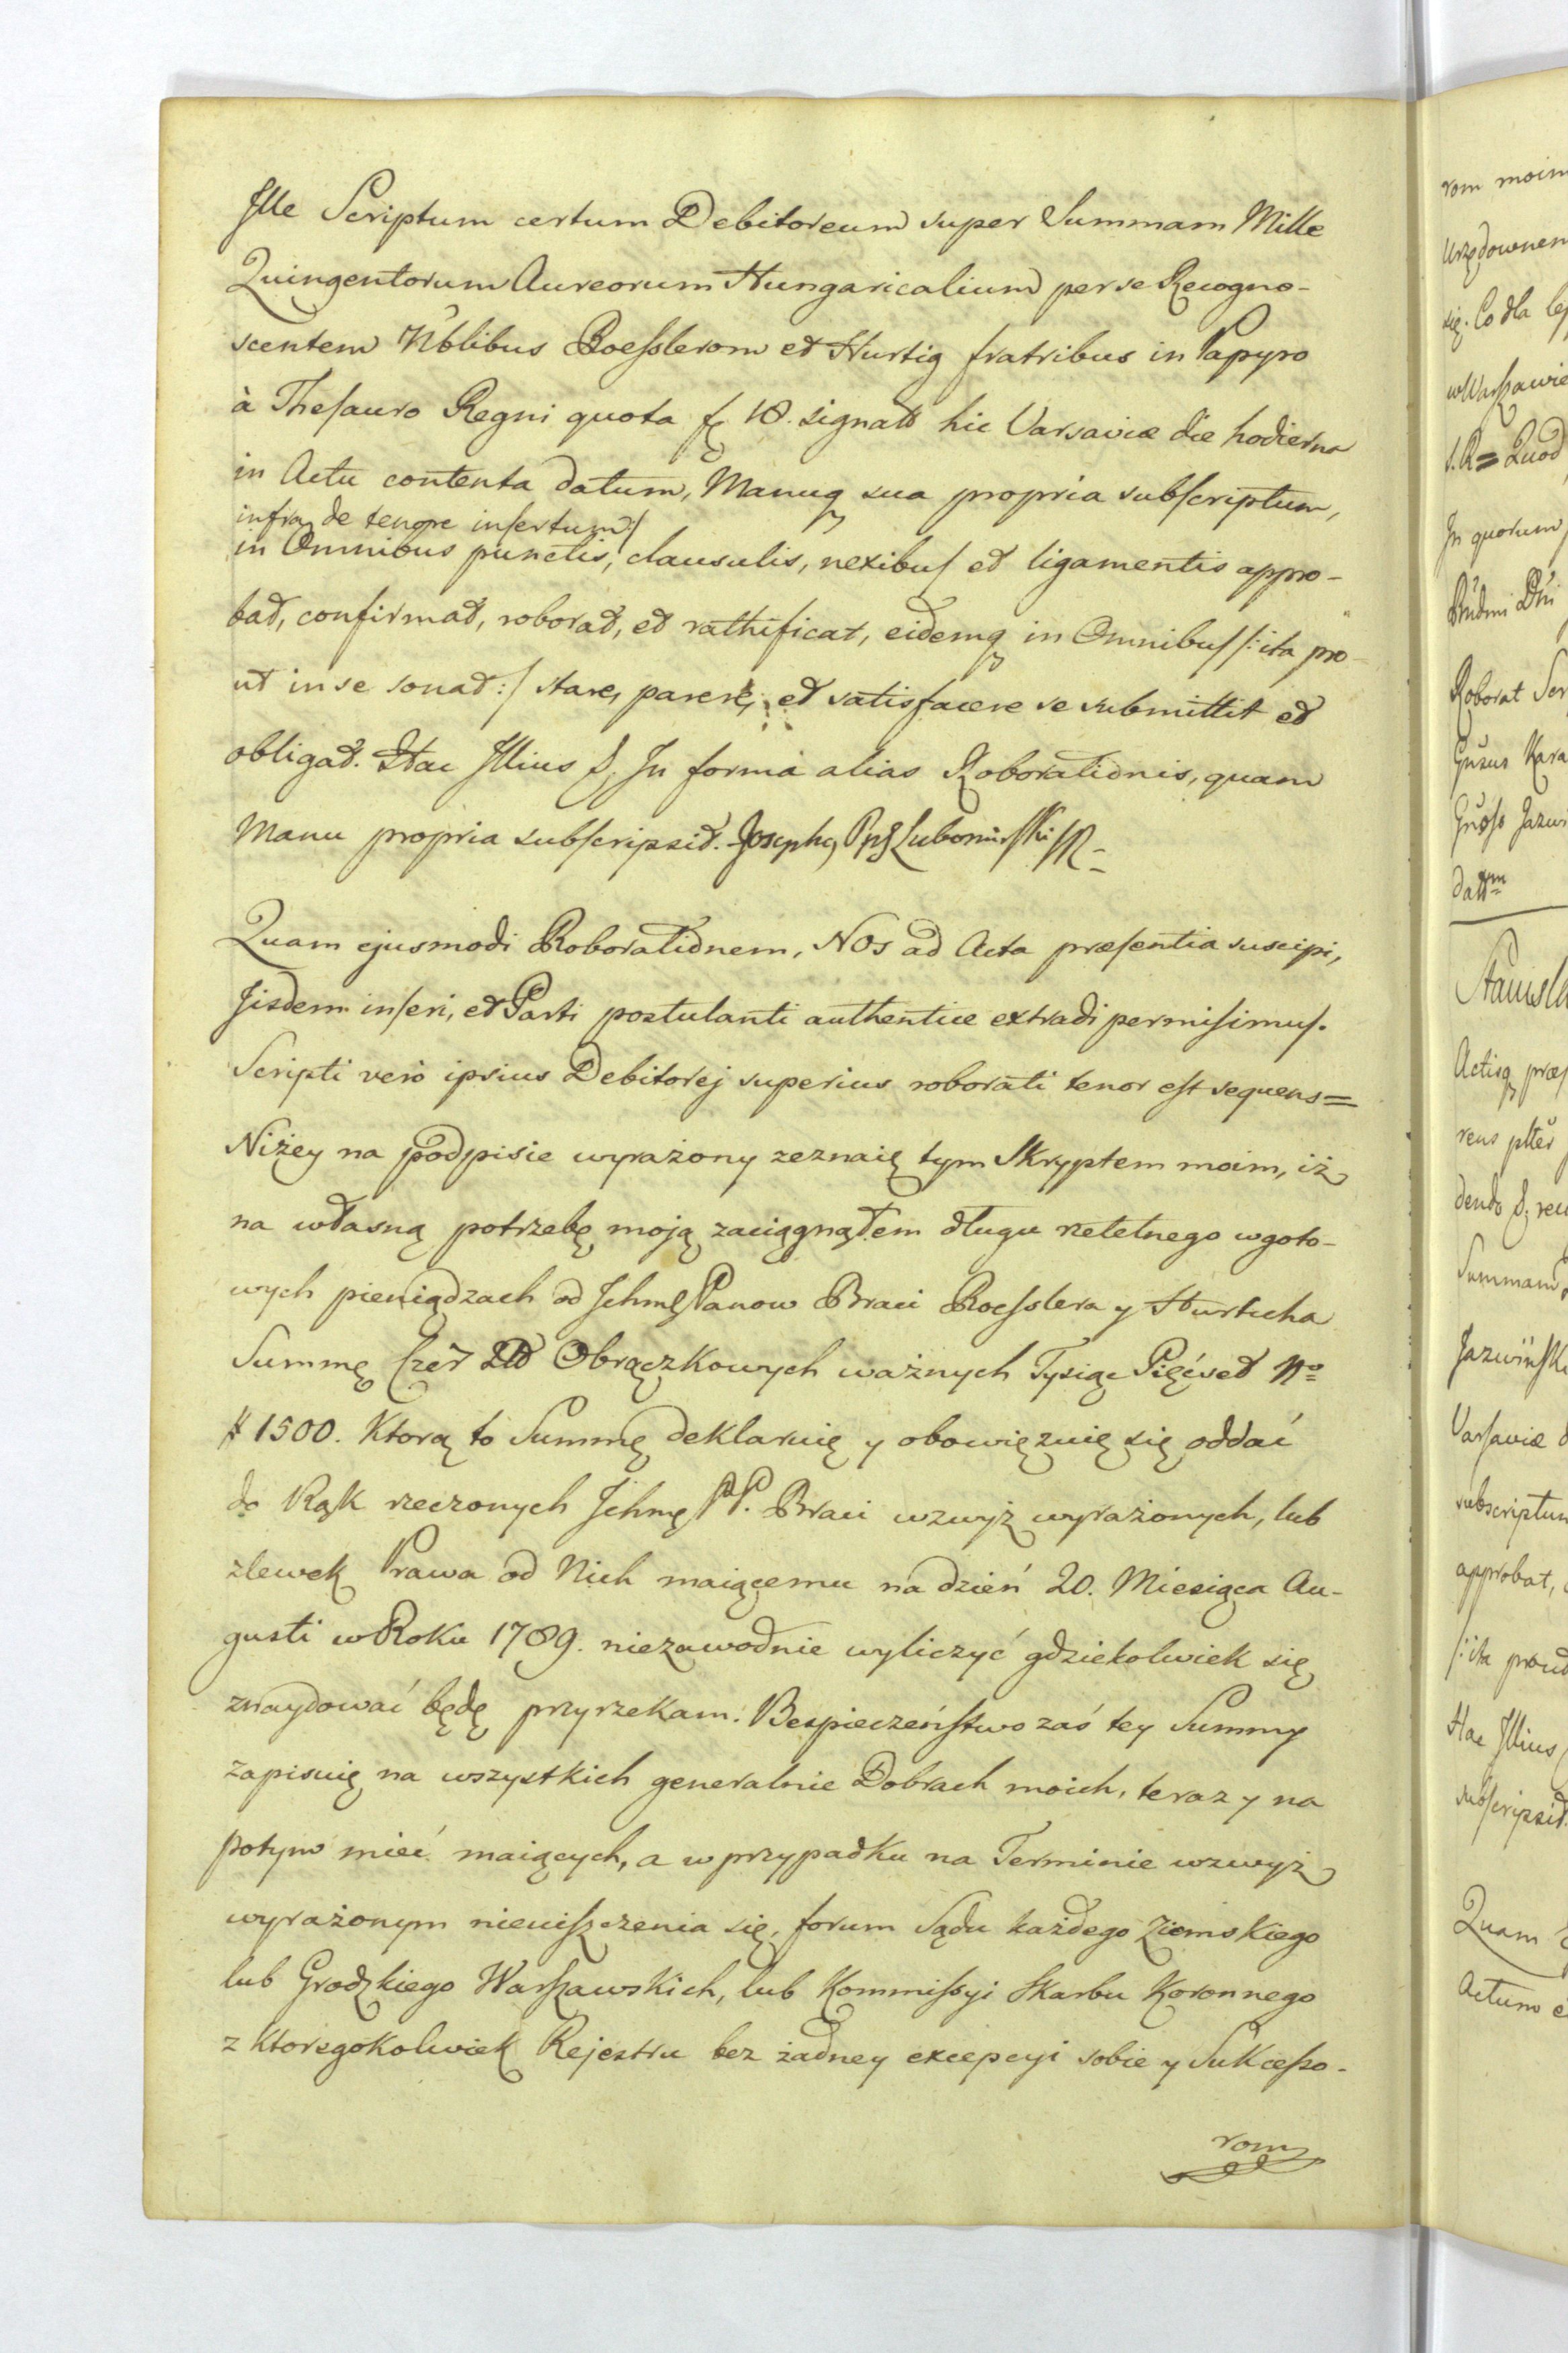 Ille Scriptum certum Debitoreum super Summam Mille
Quingentorum Aureorum Hungaricalium per se Recogno-
scentem Nblibus Roesslerom et Hurtig fratribus in Papyro
à Thesauro Regni quota 18. signato hic Varsaviæ die hodierna
in Actu contenta datum, Manuq sua propria subscriptum,
infra de tenore insertum/
in Omnibus punctis, clausulis, nexibus et ligamentis appro-
bat, confirmat, roborat, et rathificat, eidemq in Omnibus /: ita pro-
ut in se sonat :/ stare, parere, et satisfacere se submittit et
obligat. Hac Illius &, In forma alias Roborationis, quam
Manu propria subscripsit. Josephq Lubomirski
Quam ejusmodi Roborationem, Nos ad Acta præsentia suscipi,
Iisdem inseri, et Parti postulanti authentice extradi permisimus.
Scripti vero ipsius Debitorej superius roborati tenor est sequens =
Niżey na podpisie wyrażony zeznaię tym Skryptem moim, iż
na własną potrzebę moją zaciągnąłem długu rzetelnego w goto-
wych pieniądzach od Ichmę Panow Braci Roesslera y Hurticha
Summę Czer Złł Obrączkowych ważnych Tysiąc Pięćset No
# 1500. Ktorą to Summę deklaruię y obowięzuię się oddać
do Rąk rzeczonych Ichmę PP. Braci wzwyż wyrażonych, lub
zlewek Prawa od Nich maiącemu na dzień 20. Miesiąca Au-
gusti w Roku 1789. niezawodnie wyliczyć gdziekolwiek się
znaydować będę przyrzekam. Bespieczeństwo zaś tey Summy
zapisuię na wszystkich generalnie Dobrach moich, teraz y na
potym mieć maiących, a w przypadku na Terminie wzwyż
wyrażonym nieuiszczenia się, forum Sądu każdego Ziemskiego
lub Grodzkiego Warszawskich, lub Kommissyi Skarbu Koronnego
z ktoregokolwiek Rejestru bez żadney excepcyi sobie y Sukcesso-
rom
rom moim
Urzędownem
się. Co dla
w Warszawie
Quod
In quorum
Roborat
Stanisla
Actisq
Summam
Varsaviæ
subscriptum
approbat,
/: ita prout
Hac Illius
subscripsit.
Quam
Actum